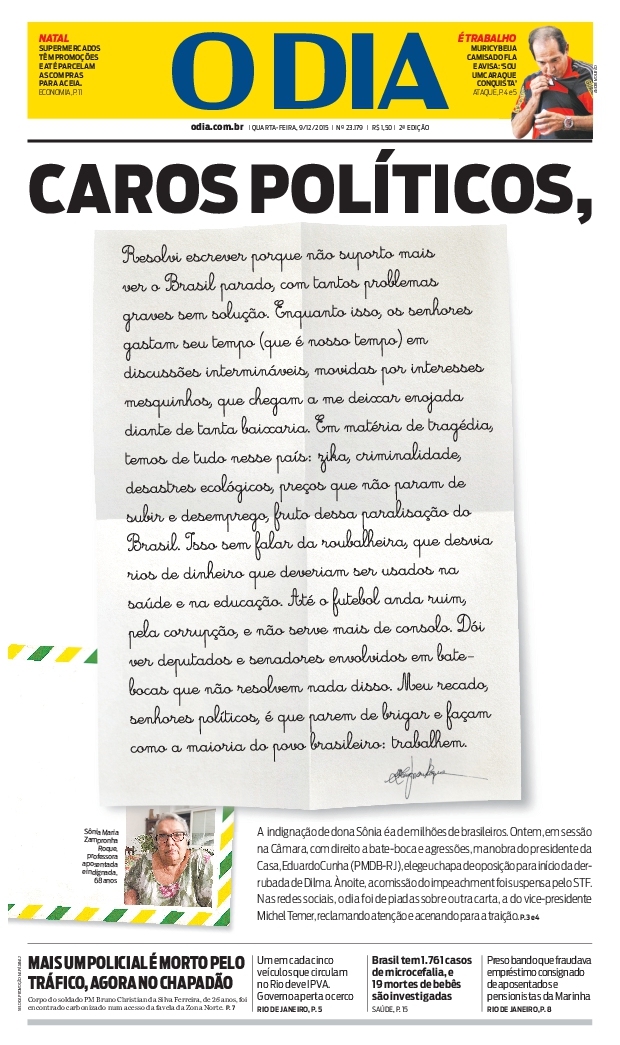 NATAL
SUPERMERCADOS
TÊM PROMOÇÕES
E ATÉ PARCELAM
AS COMPRAS
PARA A CEIA.
ECONOMIA, P. 11
O DIA
É TRABALHO
MURICY BEIJA
CAMISA DO FLA
E AVISA: 'SOU
UM CARA QUE
CONQUISTA'
ATAQUE, P. 4 e 5
odia.com.br | QUARTA-FEIRA, 9/12/2015 | Nº 23.179 | R$ 1,50 | 2ª EDIÇÃO
CAROS POLÍTICOS,
Resolvi escrever porque não suporto mais
ver o Brasil parado, com tantos problemas
graves sem solução. Enquanto isso, os senhores
gastam seu tempo (que é nosso tempo) em
discussões intermináveis, movidas por interesses
mesquinhos, que chegam a me deixar enojada
diante de tanta baixaria. Em matéria de tragédia,
temos de tudo nesse país: zika, criminalidade,
desastres ecológicos, preços que não param de
subir e desemprego, fruto dessa paralisação do
Brasil. Isso sem falar da roubalheira, que desvia
rios de dinheiro que deveriam ser usados na
saúde e na educação. Até o futebol anda ruim,
pela corrupção, e não serve mais de consolo. Dói
ver deputados e senadores envolvidos em bate-
bocas que não resolvem nada disso. Meu recado,
senhores políticos, é que parem de brigar e façam
como a maioria do povo brasileiro: trabalhem.
Sônia Maria
Zampronha
Roque,
professora
aposentada
e indignada,
68 anos
A indignação de dona Sônia é a de milhões de brasileiros. Ontem, em sessão
na Câmara, com direito a bate-boca e agressões, manobra do presidente da
Casa, Eduardo Cunha (PMDB-RJ), elegeu chapa de oposição para início da der-
rubada de Dilma. À noite, a comissão do impeachment foi suspensa pelo STF.
Nas redes sociais, o dia foi de piadas sobre outra carta, a do vice-presidente
Michel Temer, reclamando atenção e acenando para a traição. P. 3 e 4
MAIS UM POLICIAL É MORTO PELO
TRÁFICO, AGORA NO CHAPADÃO
Corpo do soldado PM Bruno Christian da Silva Ferreira, de 26 anos, foi
encontrado carbonizado num acesso da favela da Zona Norte. P. 7
Um em cada cinco
veículos que circulam
no Rio deve IPVA.
Governo aperta o cerco
RIO DE JANEIRO, P. 5
Brasil tem 1.761 casos
de microcefalia, e
19 mortes de bebês
são investigadas
SAÚDE, P. 15
Preso bando que fraudava
empréstimo consignado
de aposentados e
pensionistas da Marinha
RIO DE JANEIRO, P. 8